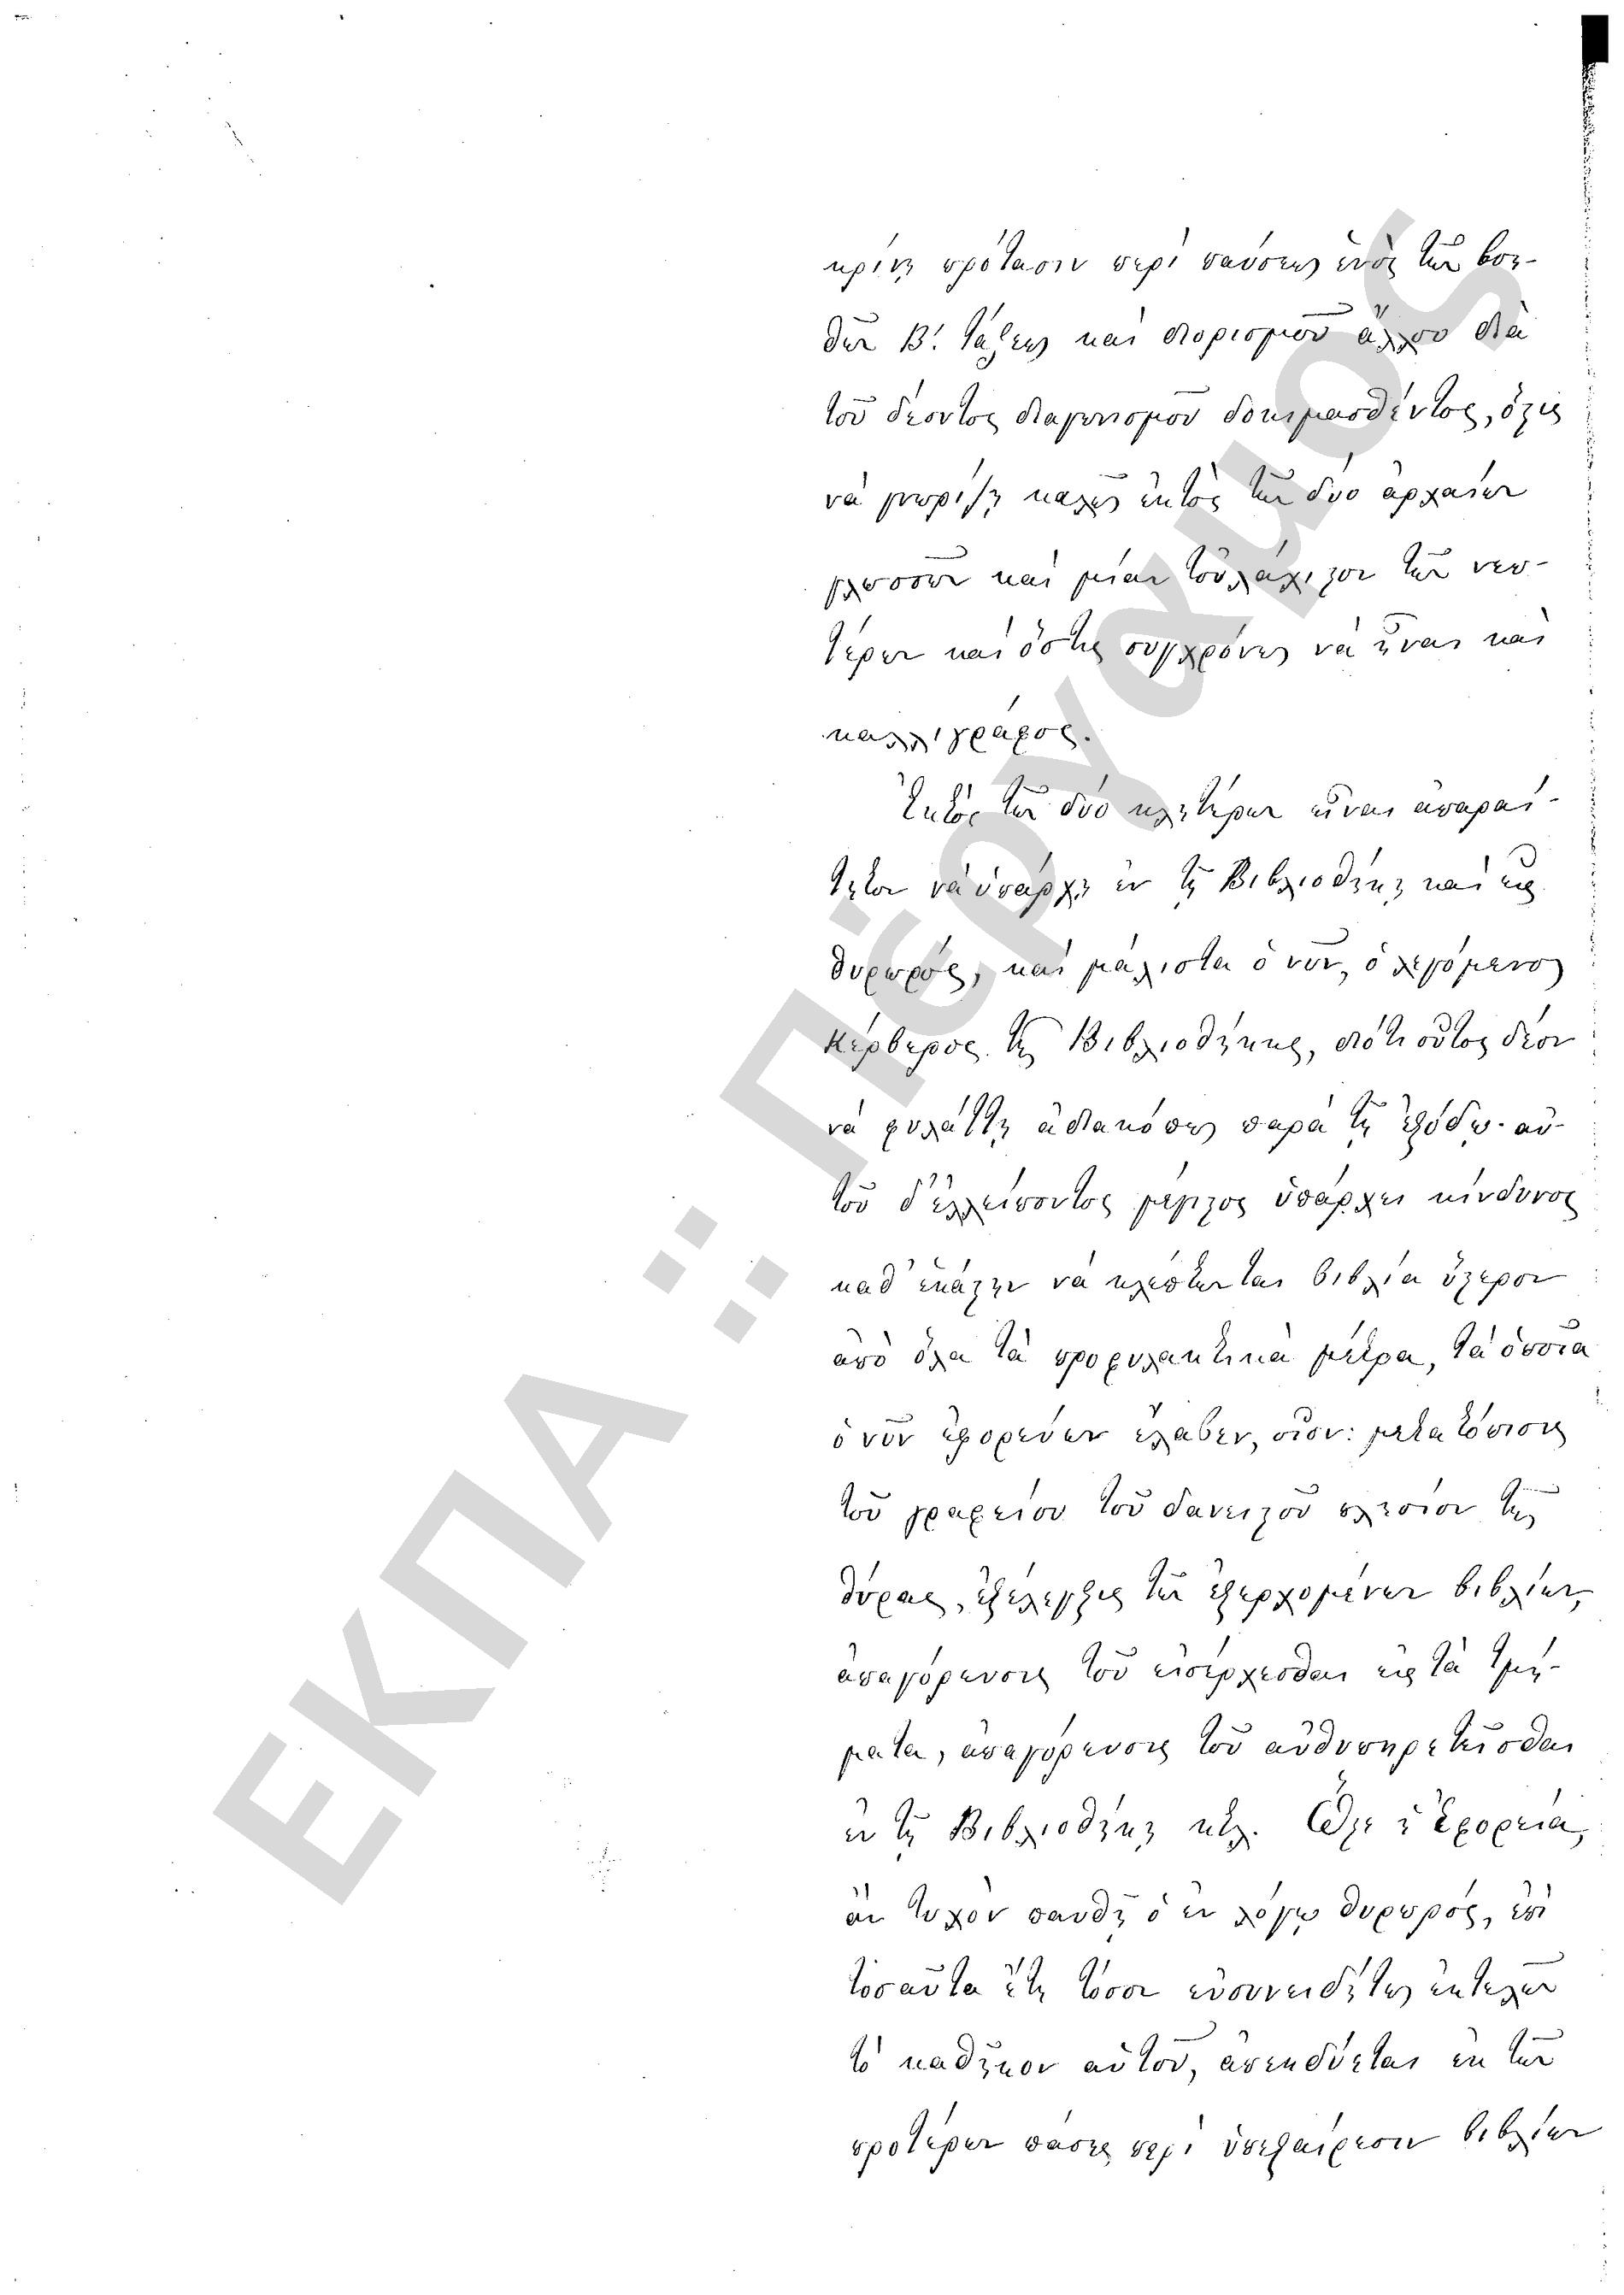 κρίνῃ πρότασιν περὶ παύσεως ἑνὸς τῶν βοη-
θῶν Β΄. τάξεως καὶ διορισμοῦ ἄλλου διὰ
τοῦ δέοντος διαγωνισμοῦ δοκιμασθέντος, ὅστις
νὰ γνωρίζῃ καλῶς ἐκτὸς τῶν δύο ἀρχαίων
γλωσσῶν καὶ μίαν τοὐλάχιστον τῶν νεω-
τέρων καὶ ὅστις συγχρόνως νὰ ἦναι καὶ
καλλιγράφος.
Ἐκτὸς τῶν δύο κλητήρων εἶναι ἀπαραί-
τητον νὰ ὑπάρχῃ ἐν τῇ Βιβλιοθήκῃ καὶ εἷς
θυρωρός, καὶ μάλιστα ὁ νῦν, ὁ λεγόμενος
Κέρβερος τῆς Βιβλιοθήκης, διότι οὗτος δέον
νὰ φυλάττῃ ἀδιακόπως παρὰ τῇ ἐξόδῳ· αὐ-
τοῦ δ' ἐλλείποντος μέγιστος ὑπάρχει κίνδυνος
καθ' ἑκάστην νὰ κλέπτωνται βιβλία ὕστερον
ἀπὸ ὅλα τὰ προφυλακτικὰ μέτρα, τὰ ὁποῖα
ὁ νῦν ἐφορεύων ἔλαβεν, οἷον: μετατόπισις
τοῦ γραφείου τοῦ δανεισμοῦ πλησίον τῆς
θύρας, ἐξέλεγξις τῶν ἐξερχομένων βιβλίων,
ἀπαγόρευσις τοῦ εἰσέρχεσθαι εἰς τὰ τμή-
ματα, ἀπαγόρευσις τοῦ αὐθυπηρετεῖσθαι
ἐν τῇ Βιβλιοθήκῃ κτλ. Ὅθεν ἡ Ἐφορεία,
ἂν τυχὸν παυθῇ ὁ ἐν λόγῳ θυρωρός, ἐπὶ
τοσαῦτα ἔτη τόσον εὐσυνειδήτως ἐκτελῶν
τὸ καθῆκον αὐτοῦ, ἀπεκδύεται ἐκ τῶν
προτέρων πάσης περὶ ὑπεξαίρεσιν βιβλίων
ΕΚΠΑ :: Πέργαμος